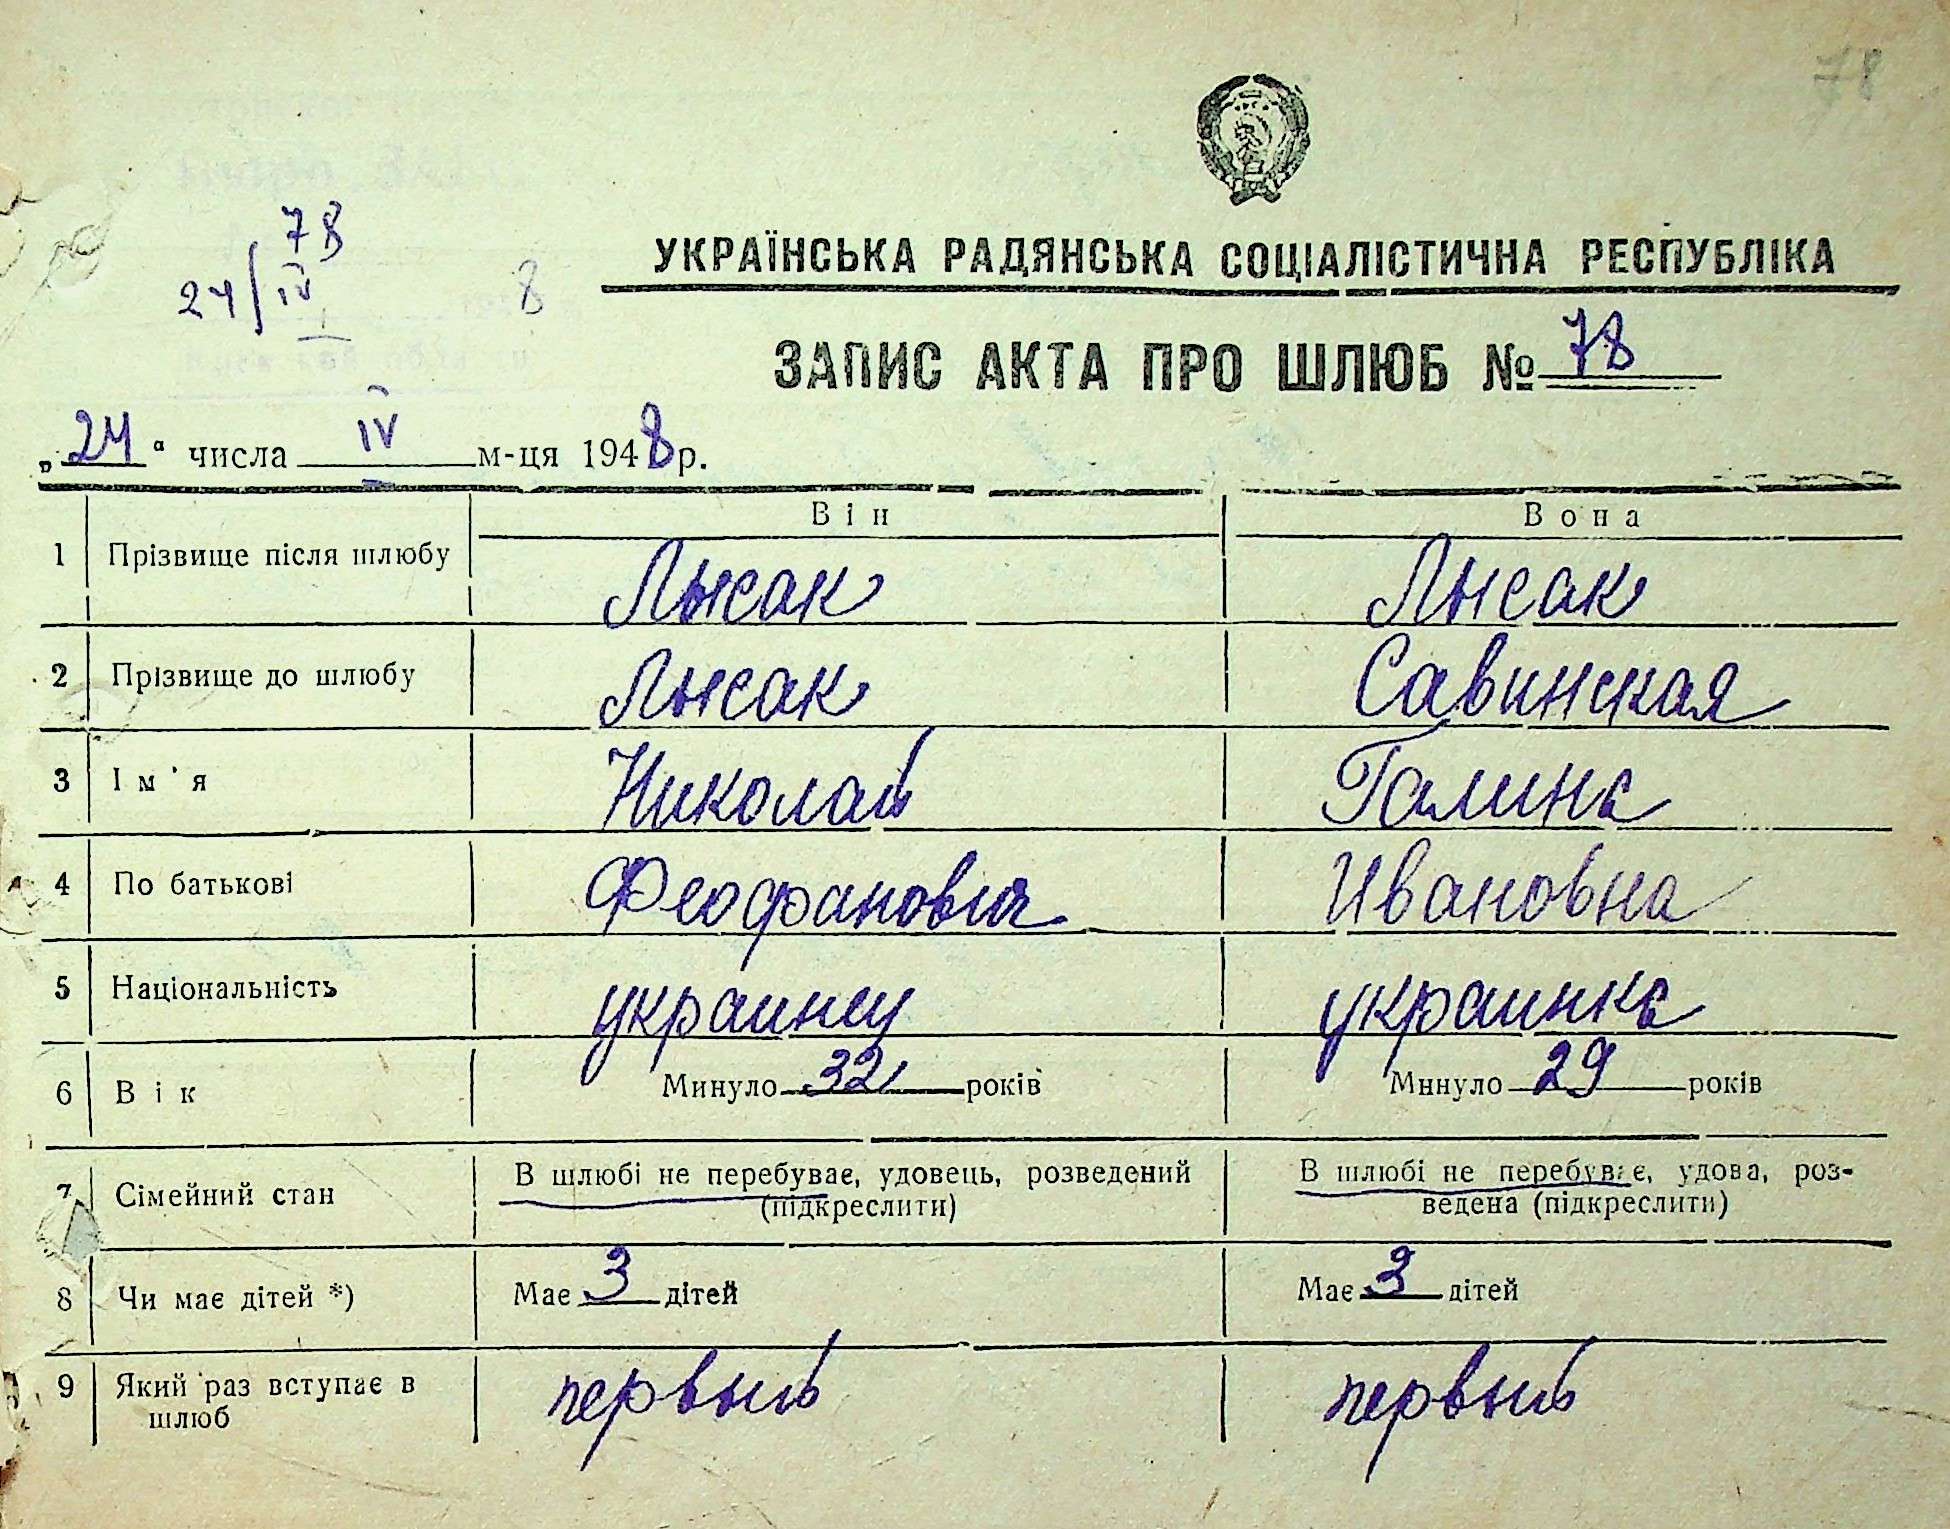 78
78
24/IV
8
УКРАЇНСЬКА РАДЯНСЬКА СОЦІАЛІСТИЧНА РЕСПУБЛІКА
ЗАПИС АКТА ПРО ШЛЮБ № 78
„24“ числа IV м-ця 1948 р.
Він Вона
1 Прізвище після шлюбу Лысак Лысак
2 Прізвище до шлюбу Лысак Савинская
3 Ім'я Николай Галина
4 По батькові Феофанович Ивановна
5 Національність украинец украинка
6 Вік Минуло 32 років Минуло 29 років
7 Сімейний стан В шлюбі не перебуває, удовець, розведений (підкреслити) В шлюбі не перебуває, удова, роз-
ведена (підкреслити)
8 Чи має дітей *) Має 3 дітей Має 3 дітей
9 Який раз вступає в шлюб первый первый